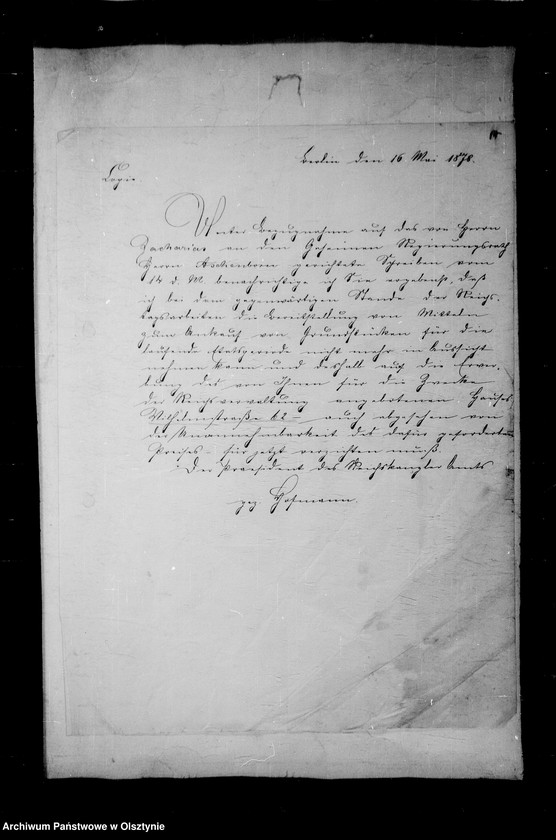 Berlin den 16 Mai 1878.
Copie
Unter Bezugnahme auf das von Herrn
Zacharias an den Geheimen Regierungsrath
Herrn Aschenborn gerichtete Schreiben vom
14 d. M. benachrichtige ich Sie ergebenst, daß
ich bei dem gegenwärtigen Stande der Reichs-
tagsarbeiten die Bereitstellung von Mitteln
zum Ankauf von Grundstücken für die
laufende Etatsperiode nicht mehr in Aussicht
nehmen kann und deshalb auf die Erwer-
bung des von Ihnen für die Zwecke
der Reichsverwaltung angebotenen Hauses
Wilhelmstraße 62 – auch abgesehen von
der Unannehmbarkeit des dafür geforderten
Preises – für jetzt verzichten muß.
Der Praesident des Reichskanzler Amts
gez. Hofmann.
Archiwum Państwowe w Olsztynie